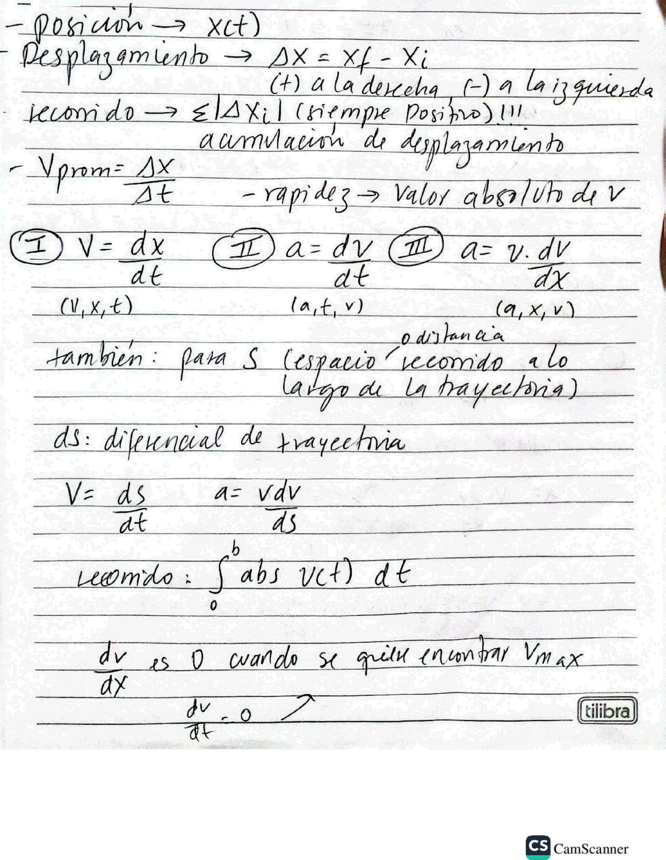 - Posición → x(t)
- Desplazamiento → Δx = xf - xi
(+) a la derecha, (-) a la izquierda
- recorrido → Σ|Δxi| (siempre positivo)!!!
acumulación de desplazamiento
- Vprom = Δx/Δt - rapidez → valor absoluto de v
(I) V = dx/dt (II) a = dv/dt (III) a = v. dv/dx
(v, x, t) (a, t, v) (a, x, v)
o distancia
también: para S (espacio recorrido a lo
largo de la trayectoria)
ds: diferencial de trayectoria
V = ds/dt a = vdv/ds
recorrido: ∫₀ᵇ abs v(t) dt
dv/dx es 0 cuando se quiere encontrar Vmax
dv/dt = 0 ↗
tilibra
CS CamScanner